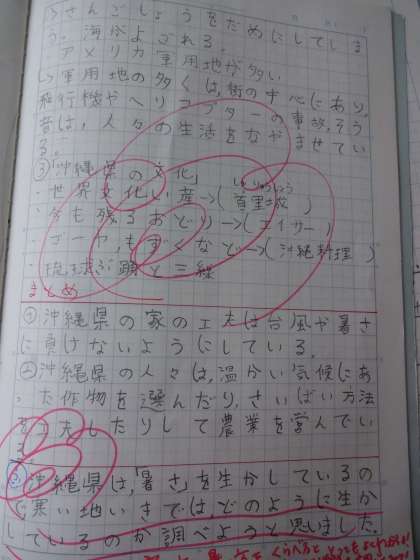 →さんごしょうをだめにしてしま
う。海がよごれる。
アメリカ軍用地が多い
→軍用地の多くは、街の中心にあり、
飛行機やヘリコプターの事故、そう
音は、人々の生活をなやませてい
る。
③「沖縄県の文化」
・世界文化い産→(首里城)
しゅりじょう
・今も残るおどり→(エイサー)
・ゴーヤ、もずくなど→(沖縄料理)
琉球ぶ踊と三線
まとめ
①沖縄県の家の工夫は台風や暑さ
に負けないようにしている。
②沖縄県の人々は、温かい気候にあ
った作物を選んだり、さいばい方法
を工夫したりして農業を営んでい
る
沖縄県は、「暑さ」を生かしているの
で、寒い地いきでは、どのように生か
しているのか調べようと思いました。